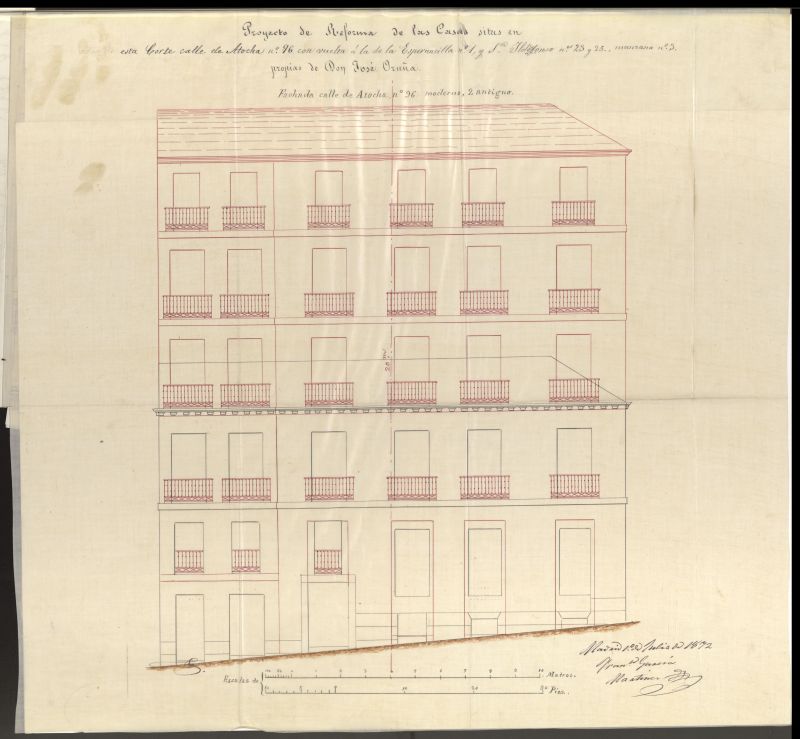 Proyecto de Reforma de las Casas sitas en
esta Corte calle de Atocha nº 96 con vuelta á la de la Esperancilla nº 1, y Sn. Ildefonso nos 23 y 25, manzana nº 3.
propias de Don José Ozuña.
Fachada calle de Atocha nº 96 moderno, 2 antiguo.
20 m
Escalas de
10 Metros.
10 20 30 Pies.
Madrid 1º de Julio de 1872
Franco García
Martinez